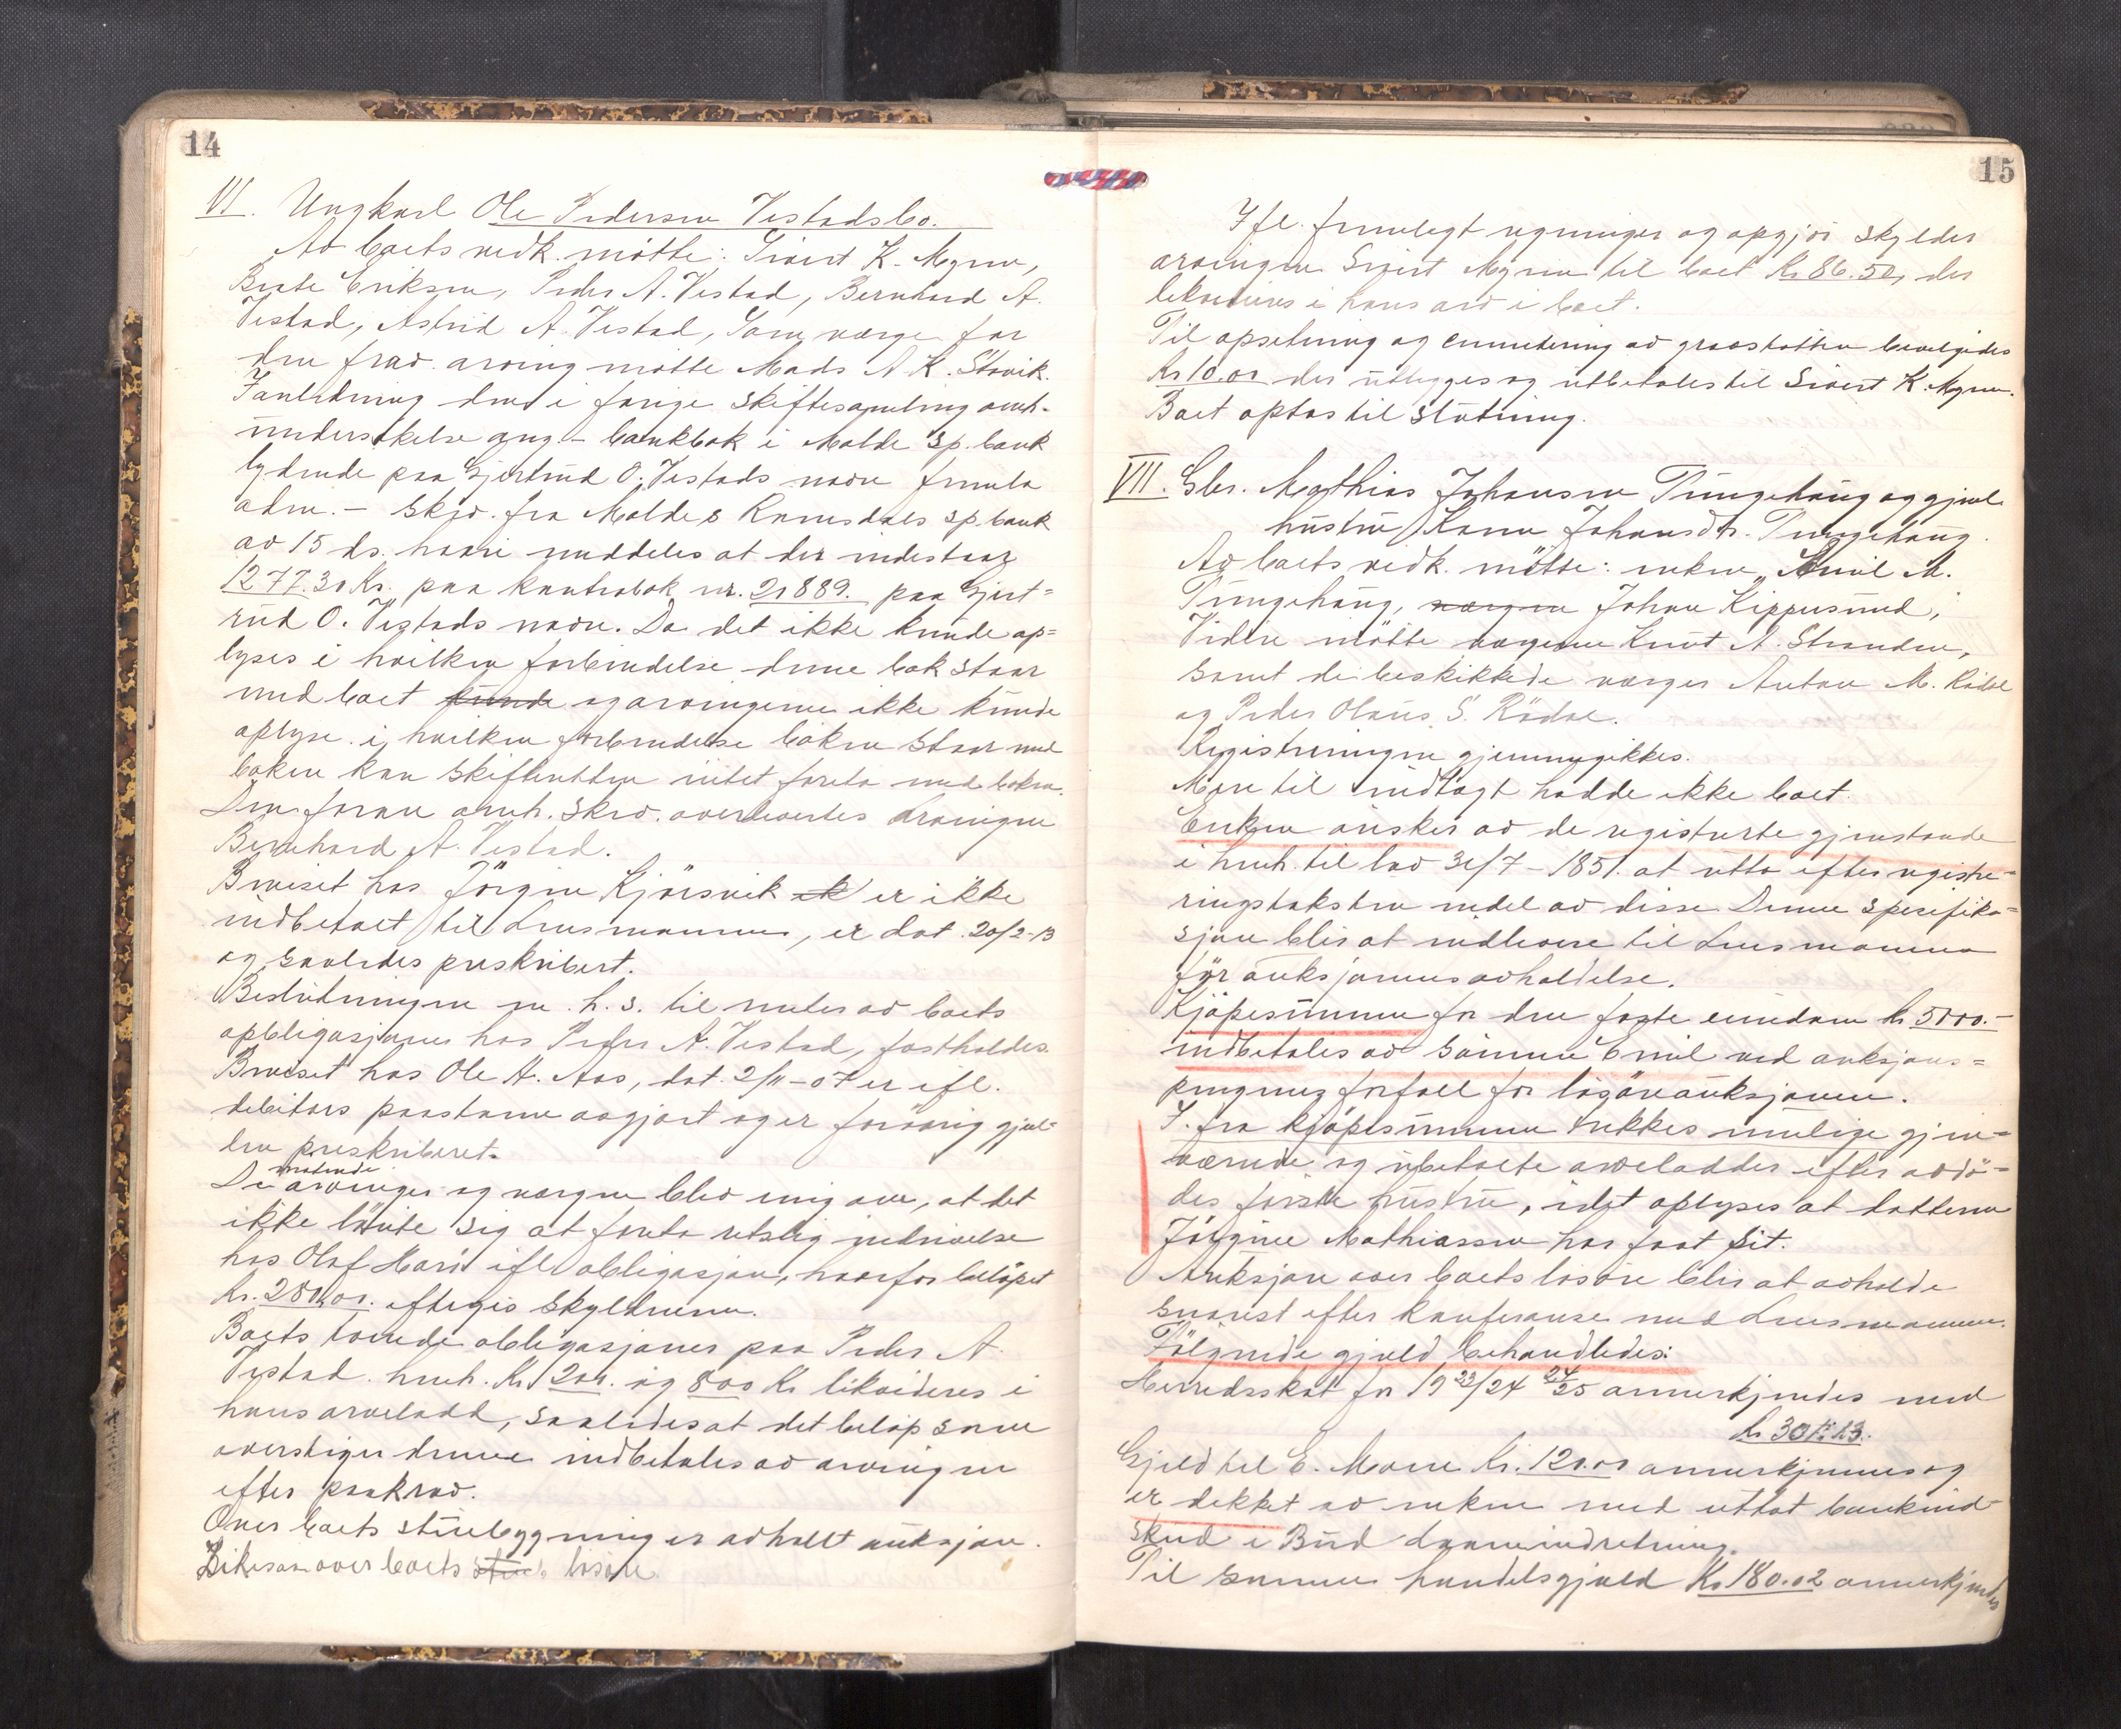 14
VI. Ungkarl Ole Pedersen Vestadsbo.
Av boets vedk. møtte: Sivert K. Myren,
Beate Eriksen, Peder A. Vestad, Bernhard A.
Vestad, Astrid A. Vestad, Som verge for
den frav. arving møtte Mads A. K. Stavik.
I anledning den i forige skiftesamling omh.
undersøkelse ang. bankbok i Molde Sp.bank
lydende paa Gjertrud O. Vestads navn fremla
adm. – skr. fra Molde & Romsdals sp.bank
av 15 ds. hvori meddeles at der indestaar
1277.30 Kr. paa kontrabok nr. 21889. paa Gjert=
rud O. Vestads navn. Da det ikke kunde op=
lyses i hvilken forbindelse denne bok staar
med boet kunde og arvingerne ikke kunde
oplyse i hvilken forbindelse boken staar med
boken kan skifteretten intet foreta med boken.
Den foran omh. skr. overleveres arvingen
Bernhard A. Vestad.
Beviset hos Jørgen Kjørsvik er ikke
indbetalt til Lensmannen, er dat. 20/2-13
og saaledes preskribert.
Beslutningen m. h. s. til renter av boets
obbligasjoner hos Peder A. Vestad, fastholdes.
Beviset hos Ole H. Aas, dat. 2/11-07 er ifl.
debitors paastann avgjort og er forøvrig gjel=
den preskriberet.
møtende
De arvinger og vergen blev enig om, at det
ikke lønte sig at foreta retslig inddrivelse
hos Olaf Harö ifl. obbligasjon, hvorfor beløpet
Kr. 200,00. eftergis skyldneren.
Boets tvende obbligasjoner paa Peder A.
Vestad. henh. Kr. 1200. og 800 Kr likvideres i
hans arvelodd, saaledes at det beløp som
overstiger denne indbetales av arvingen
efter paakrav.
Over boets stuebygning er avholdt auksjon.
Likesom over boets løsøre.
15
Ifl. fremlagt regninger og opgjør skylder
arvingen Sivert Myren til boet Kr 86.50, der
likvideres i hans arv i boet.
Til opsetning og cementering av gravstøtten bevilgedes
Kr 10.00 der utlegges og utbetales til Sivert K. Myren.
Boet optas til slutning.
VII. Gbr. Mathias Johansen Tungehaug og gjenl.
hustru Karen Johansdtr. Tungehaug.
Av boets vedk. møtte: enken, Emil M.
Tungehaug, vergen Johan Kippersund,
Videre møtte vergene Knut A. Stranden,
samt de beskikkede verger Anton M. Rødal
og Peder Olaus S. Rødal.
Registreringen gjennemgikkes.
Mere til indtægt hadde ikke boet.
Enken ønsker av de registrerte gjenstande
i henh. til lov 31/7-1851. at utta efter registre=
ringstaksten endel av disse. Denne spesifika=
sjon blir at indlevere til Lensmannen
før auksjonens avholdelse.
Kjøpesummen for den faste eiendom Kr 5000.-
indbetales av sønnen Emil ved auksjons=
pengenes forfall for løsøreauksjonen.
I. fra kjøpesummen trekkes mulige gjen=
værende og ubetalte arvelodder efter avdø=
des første hustru, idet oplyses at datteren
Jørgine Mathiassen har faat sit.
Auksjon over boets løsøre blir at avholde
snarest efter konferanse med Lensmannen.
Følgende gjæld behandledes:
Herredsskat for 19 23/24 24/25 annerkjendes med
Gjeld til E. Moen Kr. 120.00 annerkjennes og
er dekket av enken med uttat bankind=
skud i Bud Laaneindretning.
Til samme handelsgjæld Kr 180.02 annerkjendes